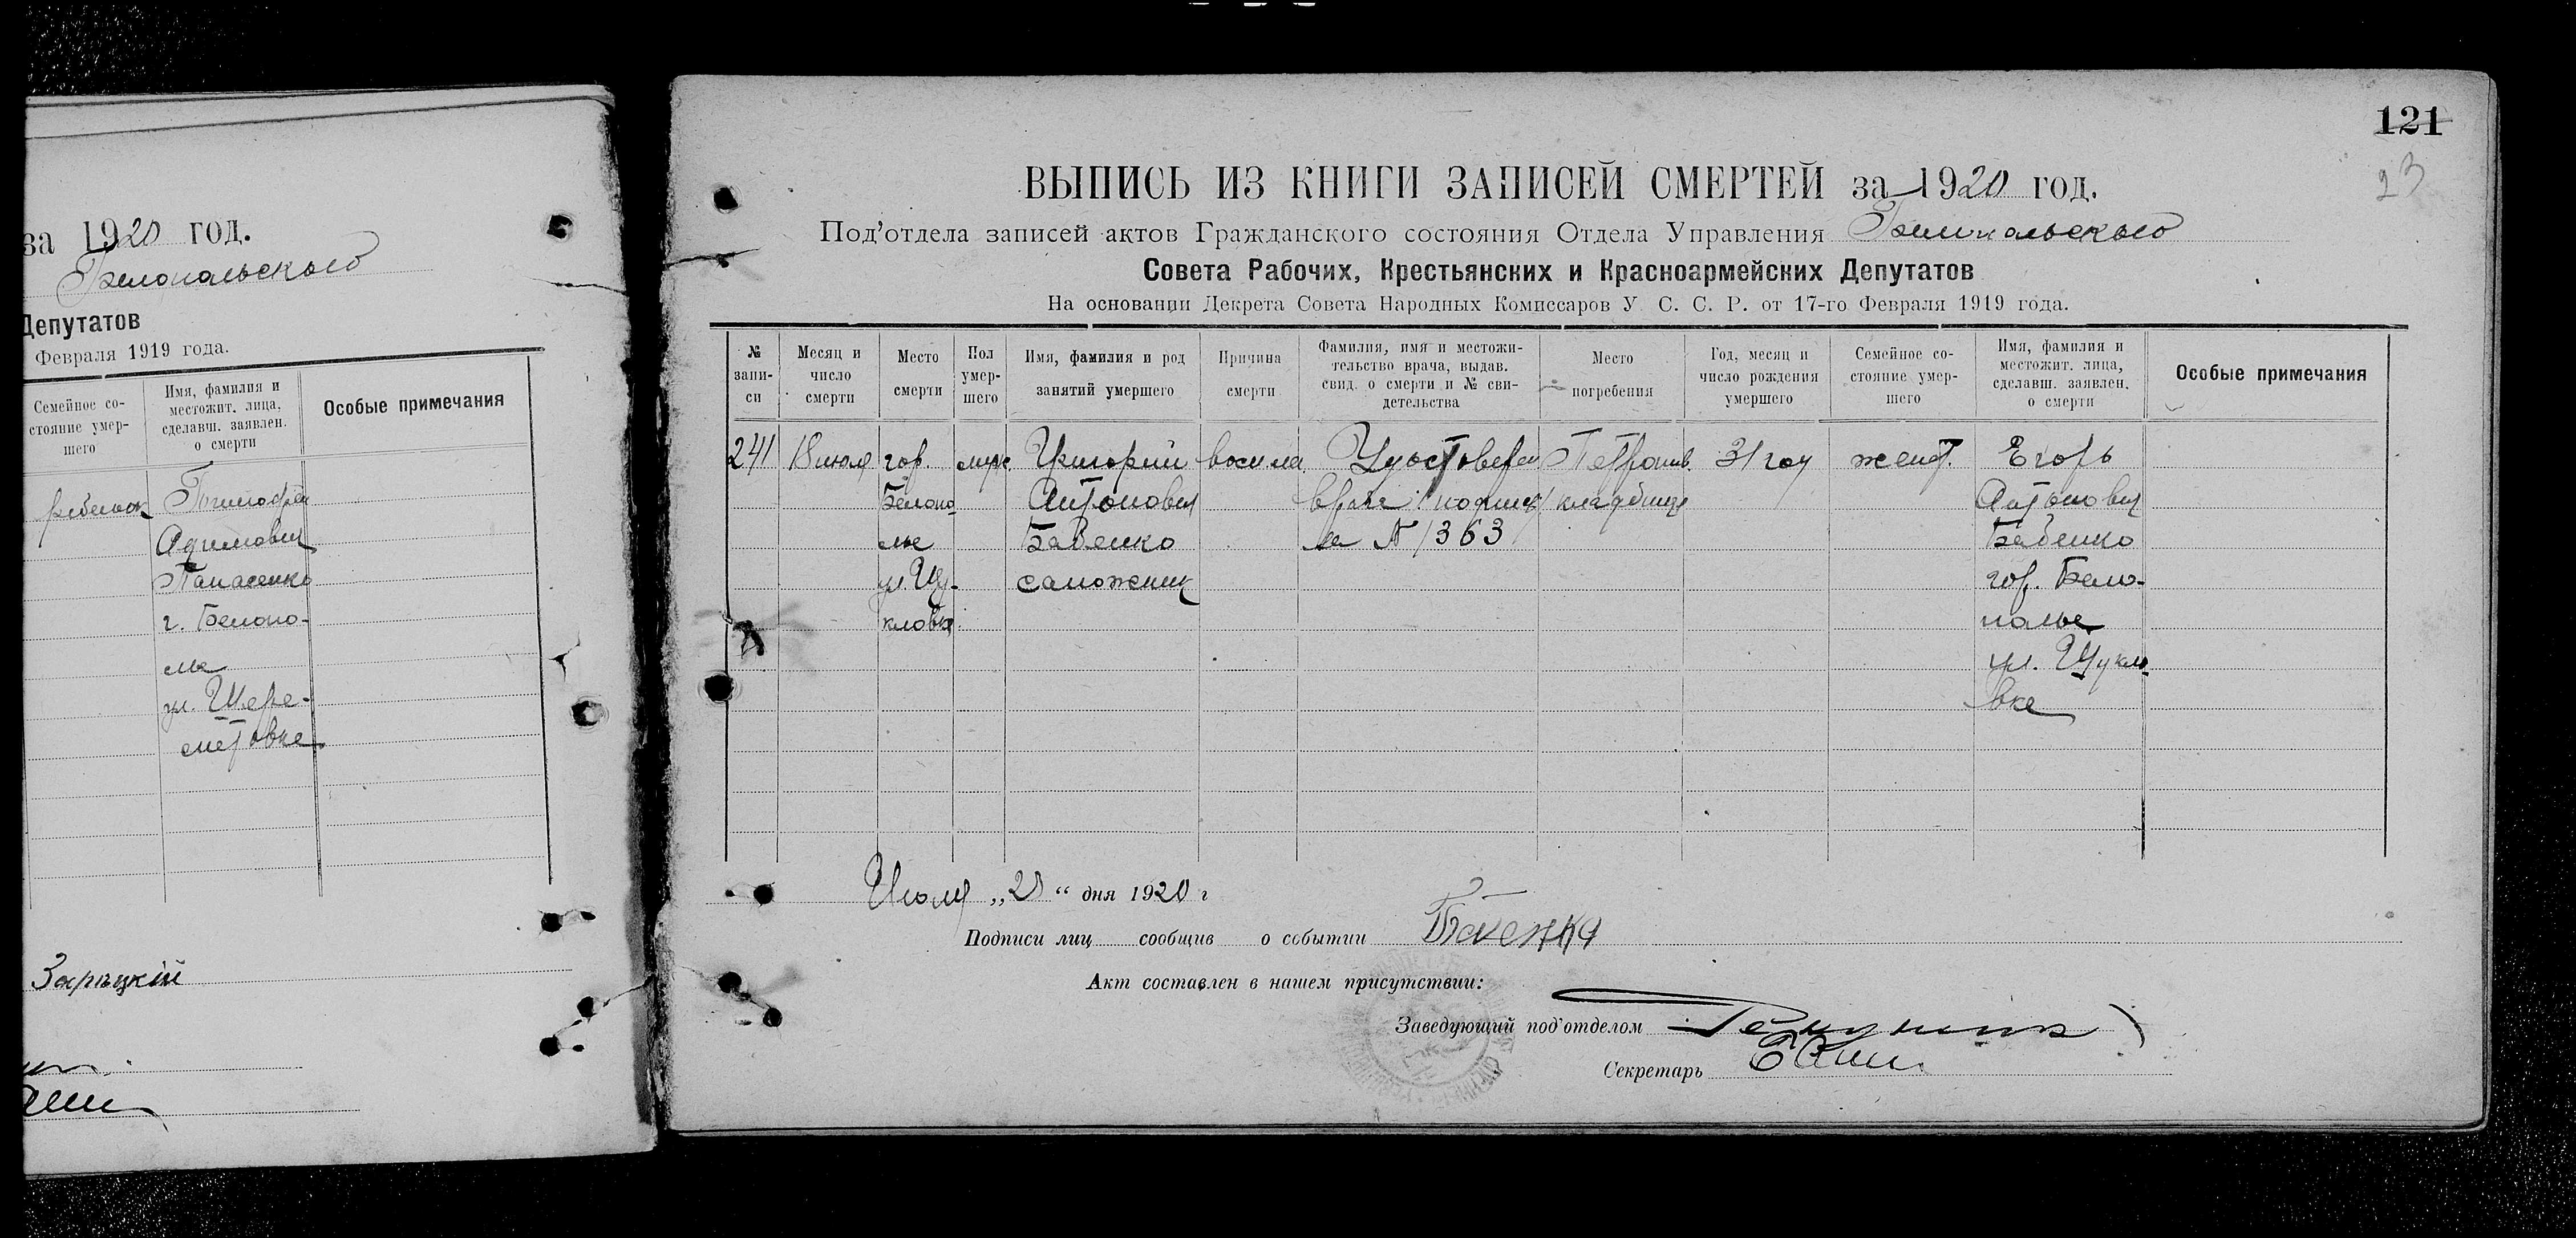 за 1920 год.
Белопольского
Депутатов
Февраля 1919 года.
Семейное со-
стояние умер-
шего
Имя, фамилия и
местожит. лица,
сделавш. заявлен.
о смерти
Особые примечания
ребенок
Тимофей
Панасенко
г. Белопо-
лье
ул. Шере-
метовке
Зарецкій
121
23
ВЫПИСЬ ИЗ КНИГИ ЗАПИСЕЙ СМЕРТЕЙ за 1920 год.
Под’отдела записей актов Гражданского состояния Отдела Управления Белопольского
Совета Рабочих, Крестьянских и Красноармейских Депутатов
На основании Декрета Совета Народных Комиссаров У. С. С. Р. от 17-го Февраля 1919 года.
№
запи-
си
Месяц и
число
смерти
Место
смерти
Пол
умер-
шего
Имя, фамилия и род
занятий умершего
Причина
смерти
Фамилия, имя и местожи-
тельство врача, выдав.
свид. о смерти и № сви-
детельства
Место
погребения
Год, месяц и
число рождения
умершего
Семейное со-
стояние умер-
шего
Имя, фамилия и
местожит. лица,
сделавш. заявлен.
о смерти
Особые примечания
241
18 июля
гор.
Белопо-
лье
ул. Цу-
кловка
муж.
Григорий
Антонович
Бабенко
сапожник
Удостоверен
врача
за № 1363
Петропав.
кладбище
31 год
женат.
Егорь
Антонович
Бабенко
гор. Бело-
полье
ул. Цукло-
вке
Июля „20“ дня 1920 г
Подписи лиц сообщив о событии Бабенка
Акт составлен в нашем присутствии:
Заведующий под’отделом
Секретарь